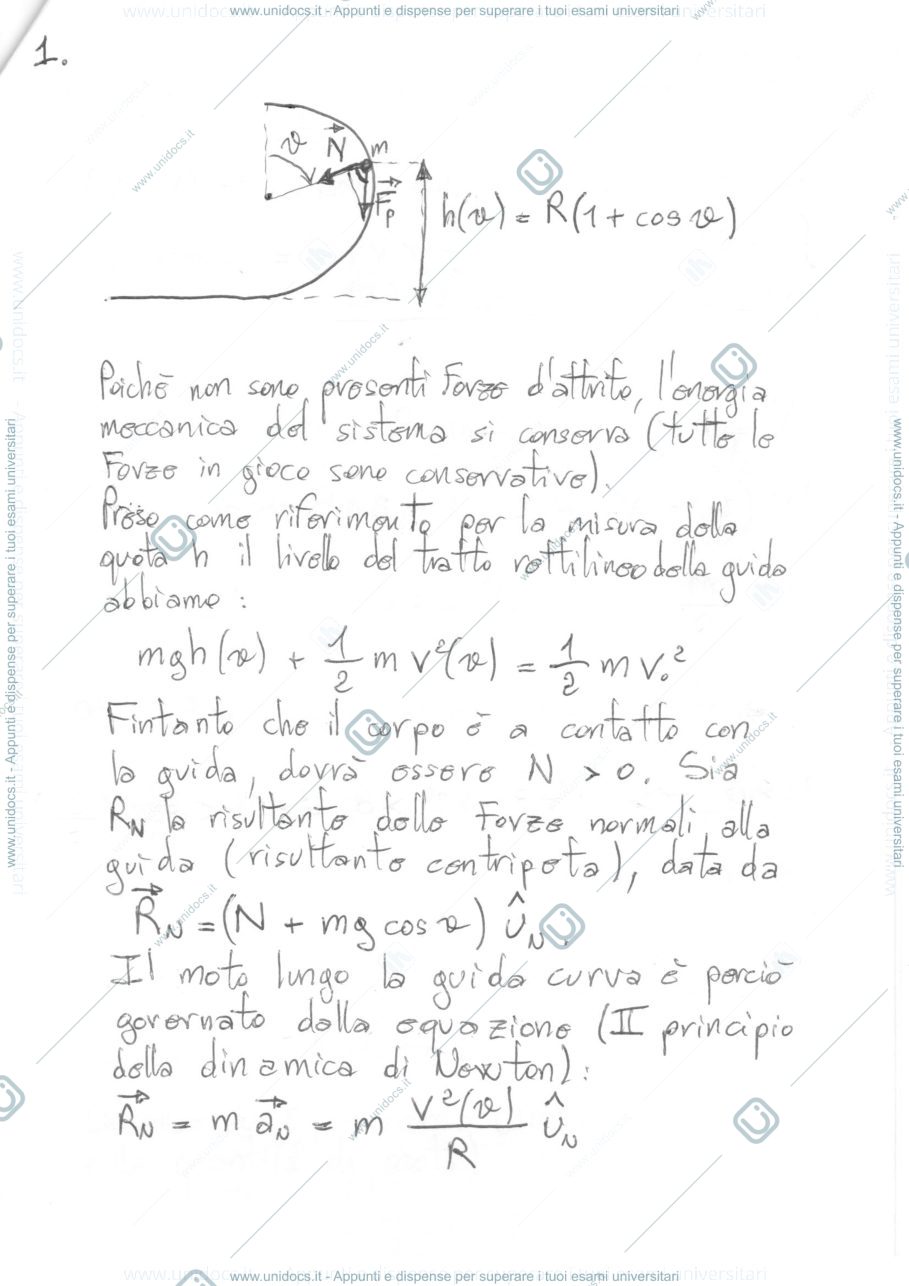 www.unidocs.it - Appunti e dispense per superare i tuoi esami universitari
1.
ϑ N m
F_p
h(ϑ) = R(1 + cos ϑ)
Poichè non sono presenti Forze d'attrito, l'energia
meccanica del sistema si conserva (tutte le
Forze in gioco sono conservative).
Preso come riferimento per la misura della
quota h il livello del tratto rettilineo della guida
abbiamo :
mgh(ϑ) + 1/2 m v²(ϑ) = 1/2 m v₀²
Fintanto che il corpo è a contatto con
la guida, dovrà essere N > 0. Sia
R_N la risultante delle Forze normali alla
guida (risultante centripeta), data da
R⃗_N = (N + mg cos ϑ) Û_N.
Il moto lungo la guida curva è perciò
governato dalla equazione (II principio
della dinamica di Newton):
R⃗_N = m a⃗_N = m v²(ϑ)/R Û_N
www.unidocs.it - Appunti e dispense per superare i tuoi esami universitari
www.unidocs.it - Appunti e dispense per superare i tuoi esami universitari
www.unidocs.it - Appunti e dispense per superare i tuoi esami universitari